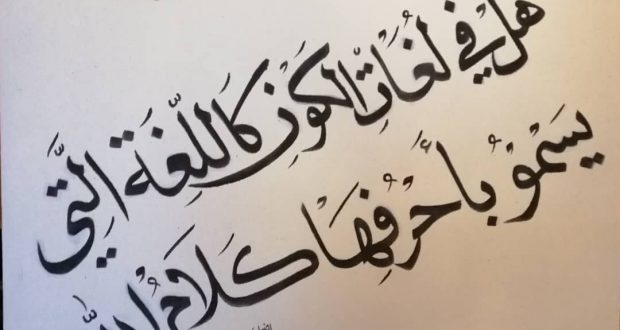 هَلْ فِي لُغَاتِ الْكَوْنِ كَاللُّغَةِ الَّتِي
يَسْمُوْ بِأَحْرُفِهَا كَلَامُ اللّٰهِ